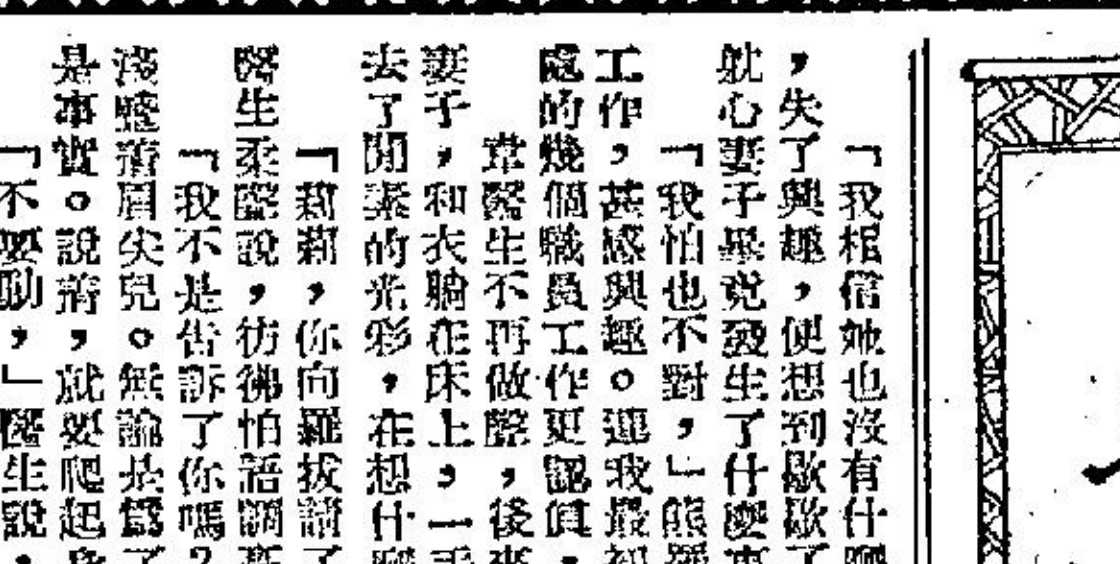 「我相信她也沒有什麼
，失了興趣，便想到歇歇了
躭心妻子果說發生了什麼事
「我怕也不對，」熊
工作，甚感興趣。連我最初
處的幾個職員工作更認眞，
常醫生不再做聲，後來
妻子，和衣躺在床上，一手
去了閒素的光彩，在想什麼
「莉莉，你向羅拔講了
醫生柔聲說，彷彿怕語調
「我不是告訴了你嗎？
淺蹙着眉尖兒。無論是爲了
是事實。說着，就要爬起身
「不要動，」醫生說，